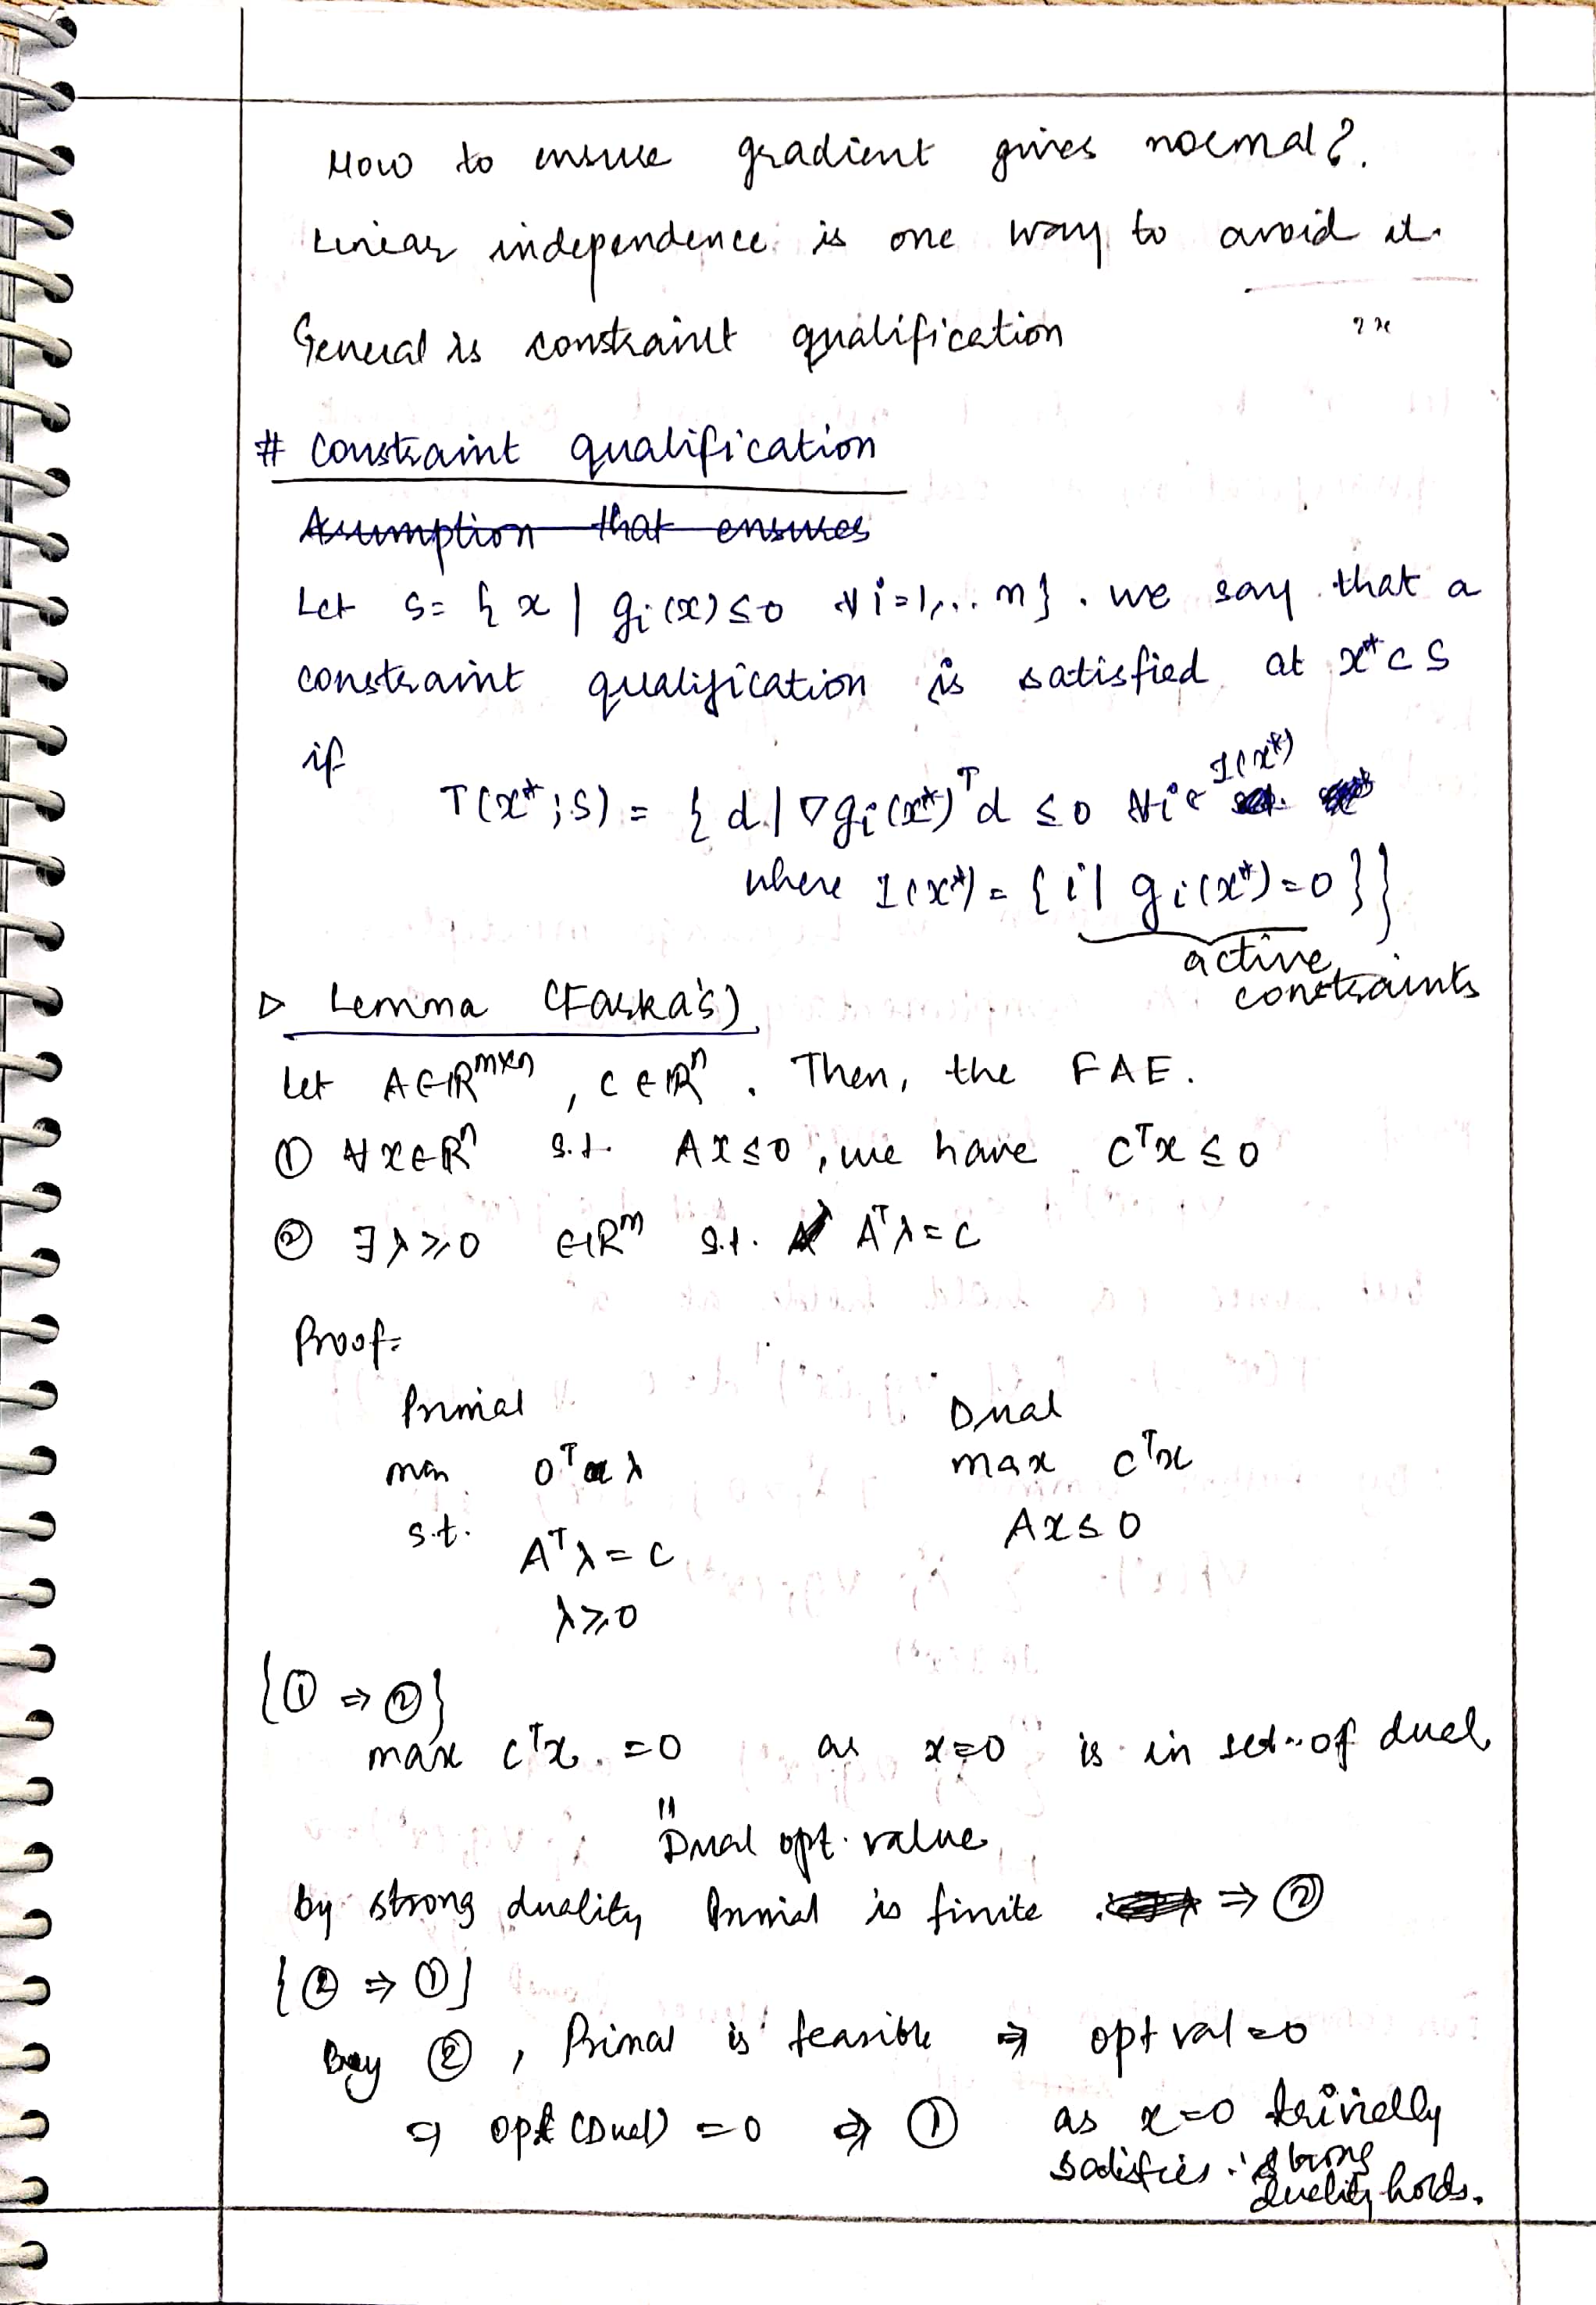 How to ensure gradient gives normal?
Linear independence is one way to avoid it.
General is constraint qualification
# Constraint qualification
Assumption that ensures
Let S = { x | gᵢ(x) ≤ 0 ∀ i=1,.. m } . we say that a
constraint qualification is satisfied at x* ⊂ S
if
T(x*; S) = { d | ∇gᵢ(x*)ᵀd ≤ 0 ∀ i ∈ I(x*)
where I(x*) = { i | gᵢ(x*) = 0 } }
active
constraints
▷ Lemma (Farka's)
Let A ∈ ℝᵐˣⁿ , C ∈ ℝⁿ . Then, the FAE.
① ∀ x ∈ ℝⁿ s.t. Ax ≤ 0 , we have Cᵀx ≤ 0
② ∃ λ ≥ 0 ∈ ℝᵐ s.t. Aᵀλ = C
Proof:
Primal Dual
min 0ᵀλ max cᵀx
s.t. Aᵀλ = C Ax ≤ 0
λ ≥ 0
{① ⇒ ②}
max cᵀx = 0 as x = 0 is in set of dual
||
Dual opt. value
by strong duality Primal is finite ⇒ ②
{② ⇒ ①}
By ② , Primal is feasible ⇒ opt val = 0
⇒ opt (Dual) = 0 ⇒ ① as x = 0 trivially
satisfies ∴ strong
duality holds.